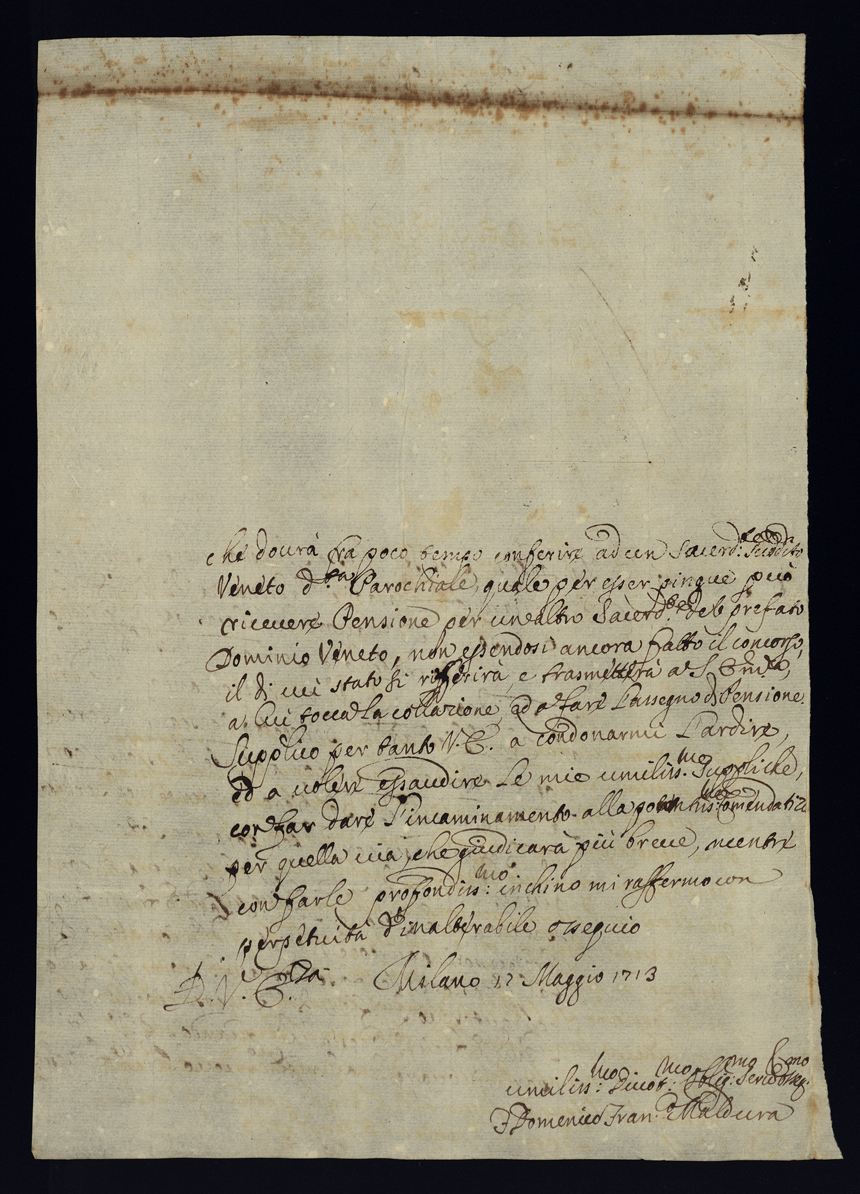 che dourà fra poco tempo conferire ad un Sacerd: Suddito
Veneto d.ta Parochiale, quale per esser pingue può
ricevere Pensione per un'altro Sacerd.te del prefato
Dominio Veneto, non essendosi ancora fatto il concorso,
il di cui stato si rifferirà, e trasmetterà a S. Em.za,
a cui tocca la collazione, ed a fare l'assegno di Pensione.
Supplico per tanto V.E. a condonarmi l'ardire,
ed a voler essaudire le mie umilis.me Suppliche,
con far dare l'incaminamento alla
per quella via, che giudicarà più breve, mentre
con farle profondis:mo inchino mi raffermo con
perpetuità d'inalterabile ossequio
D. V. E.za Milano 17 Maggio 1713
umilis:mo Divot:mo Oblig:mo Serv
F Domenico Fran: Maldura